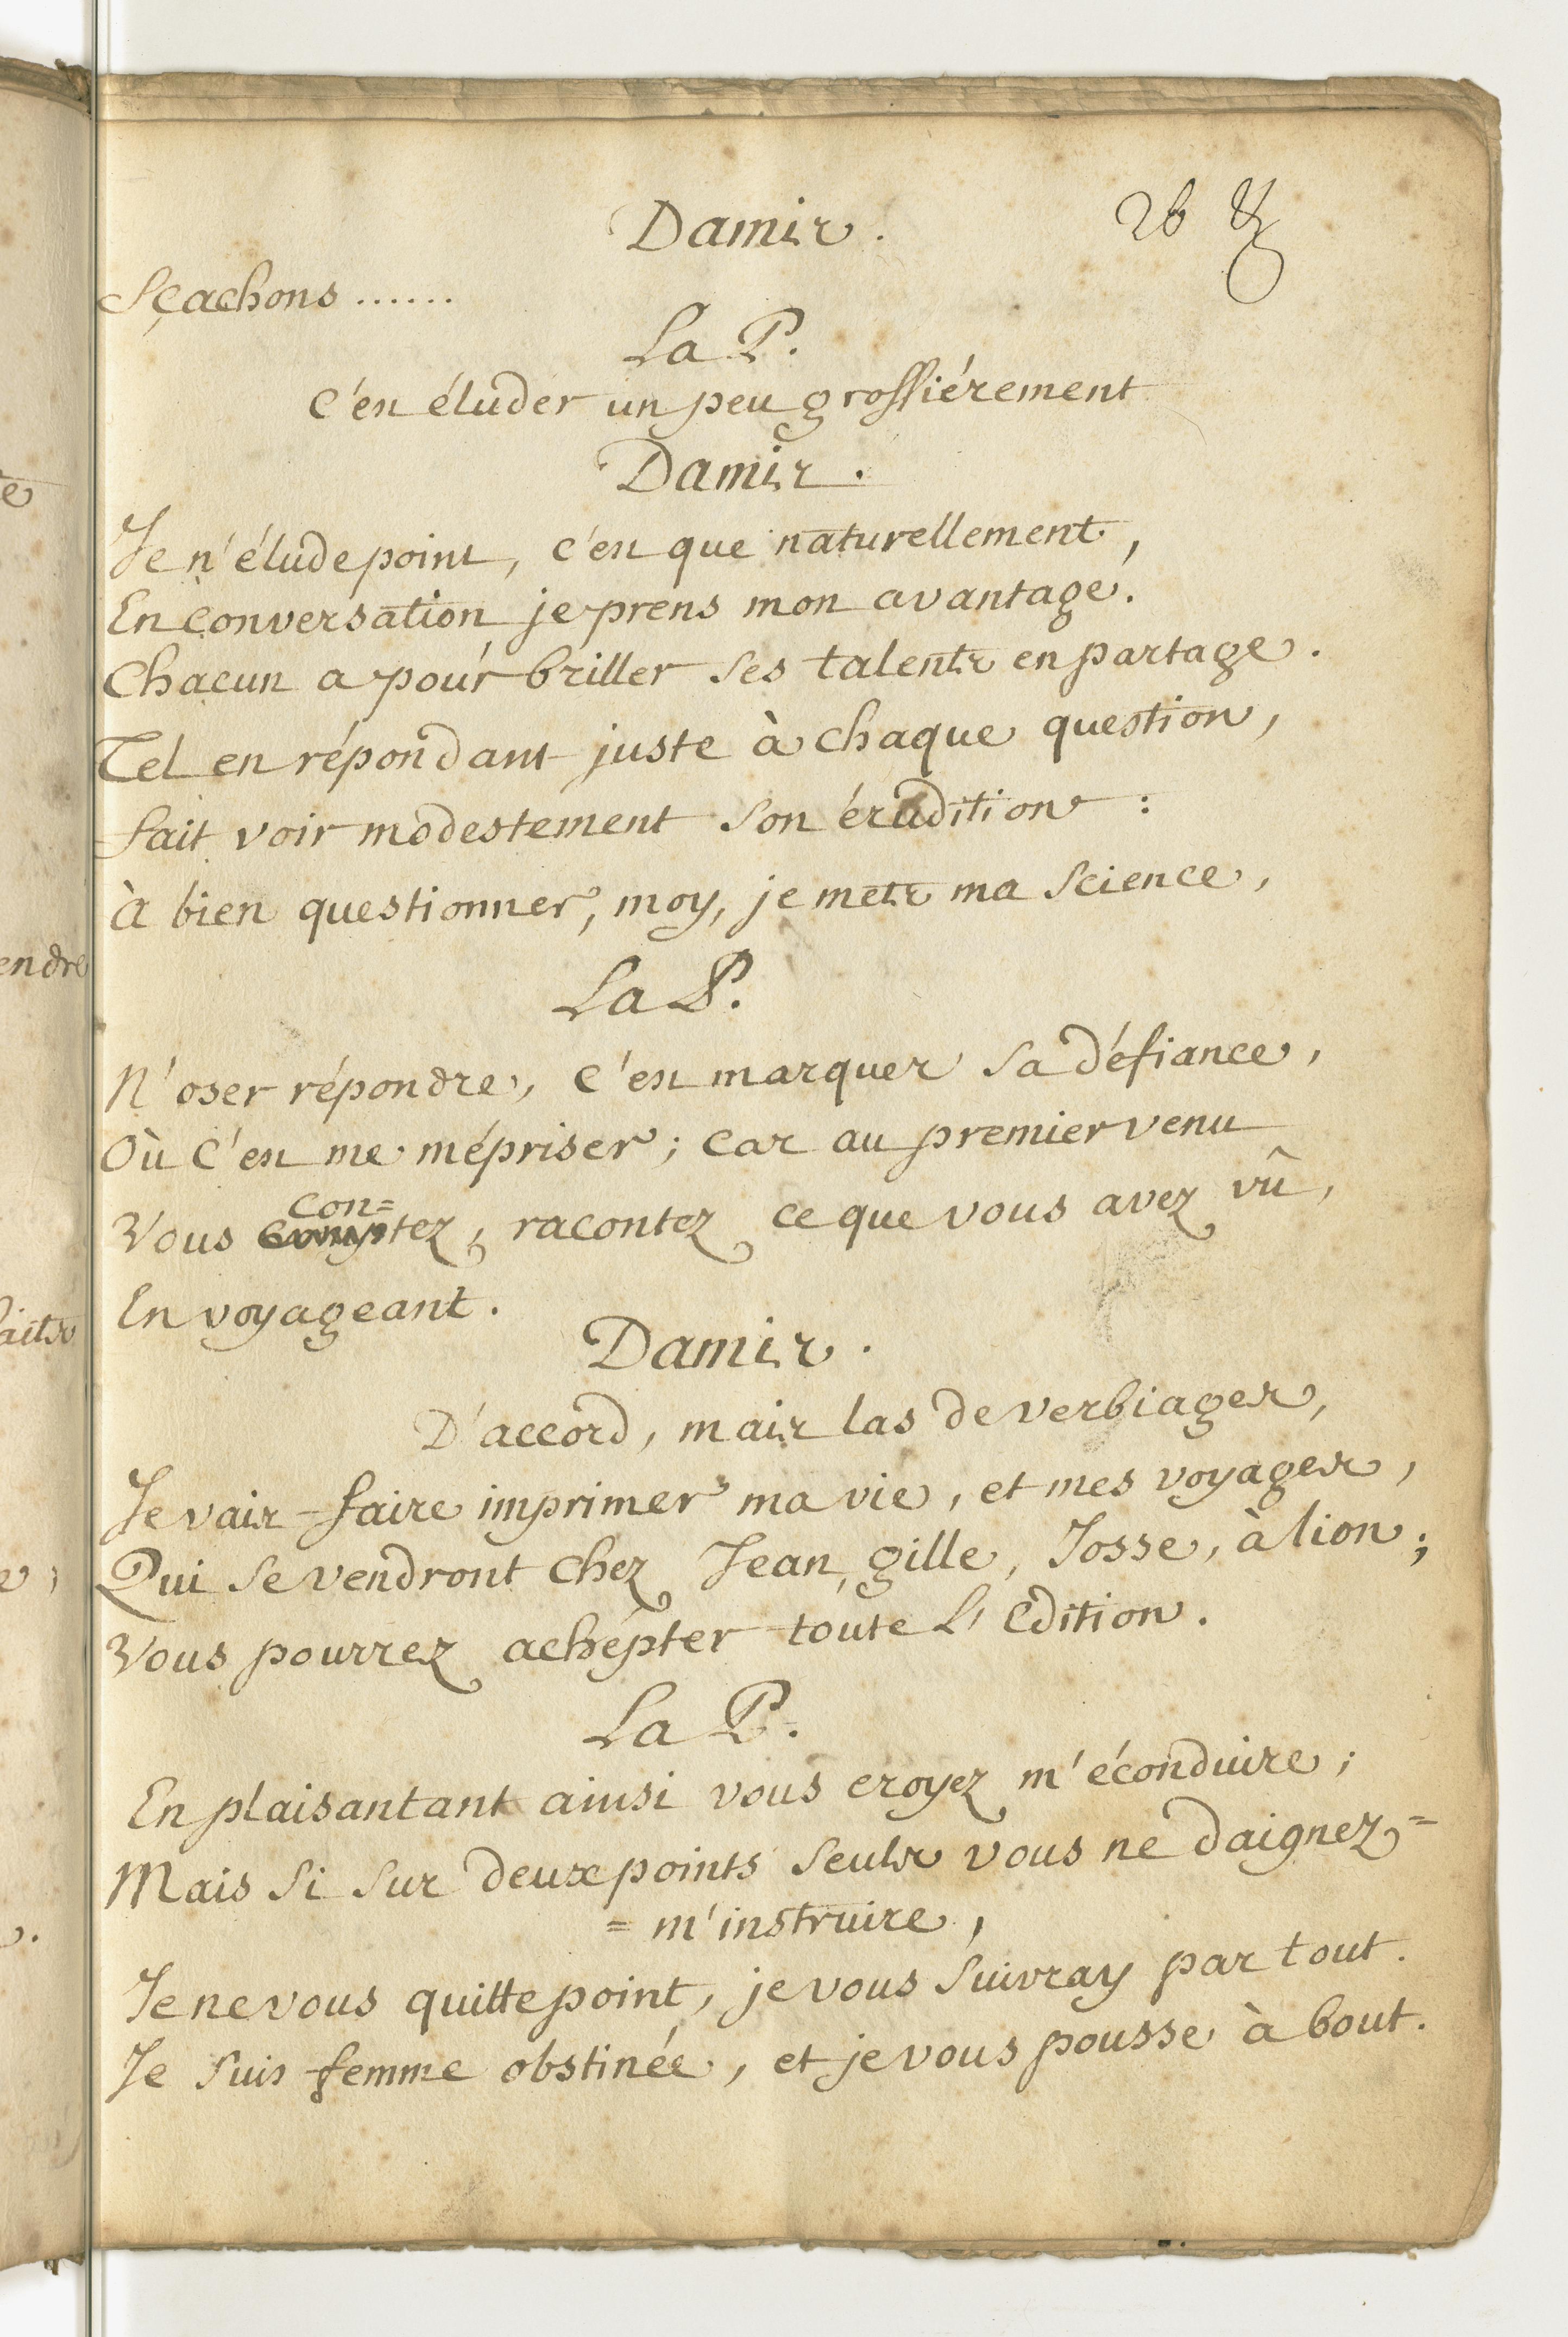 26
Damis.
Sçachons ......
La P.
c'est éluder un peu grossiérement
Damis.
Je n'élude point, c'est que naturellement,
En conversation je prens mon avantage.
Chacun a pour briller ses talents en partage.
Tel en répondant juste à chaque question,
fait voir modestement son érudition :
à bien questionner, moy, je mets ma science,
La P.
N'oser répondre, c'est marquer sa défiance,
Où c'est me mépriser ; car au premier venu
con=
Vous comptez, racontez ce que vous avez vû,
En voyageant.
Damis.
D'accord, mais las de verbiages,
Je vais faire imprimer ma vie, et mes voyages,
Qui se vendront chez Jean, gille, Josse, à lion ;
Vous pourrez achépter toute l'Edition.
La P.
En plaisantant ainsi vous croyez m'éconduire ;
Mais si sur deux points seuls vous ne daignez=
= m'instruire,
Je ne vous quitte point, je vous suivray par tout.
Je suis femme obstinée, et je vous pousse à bout.